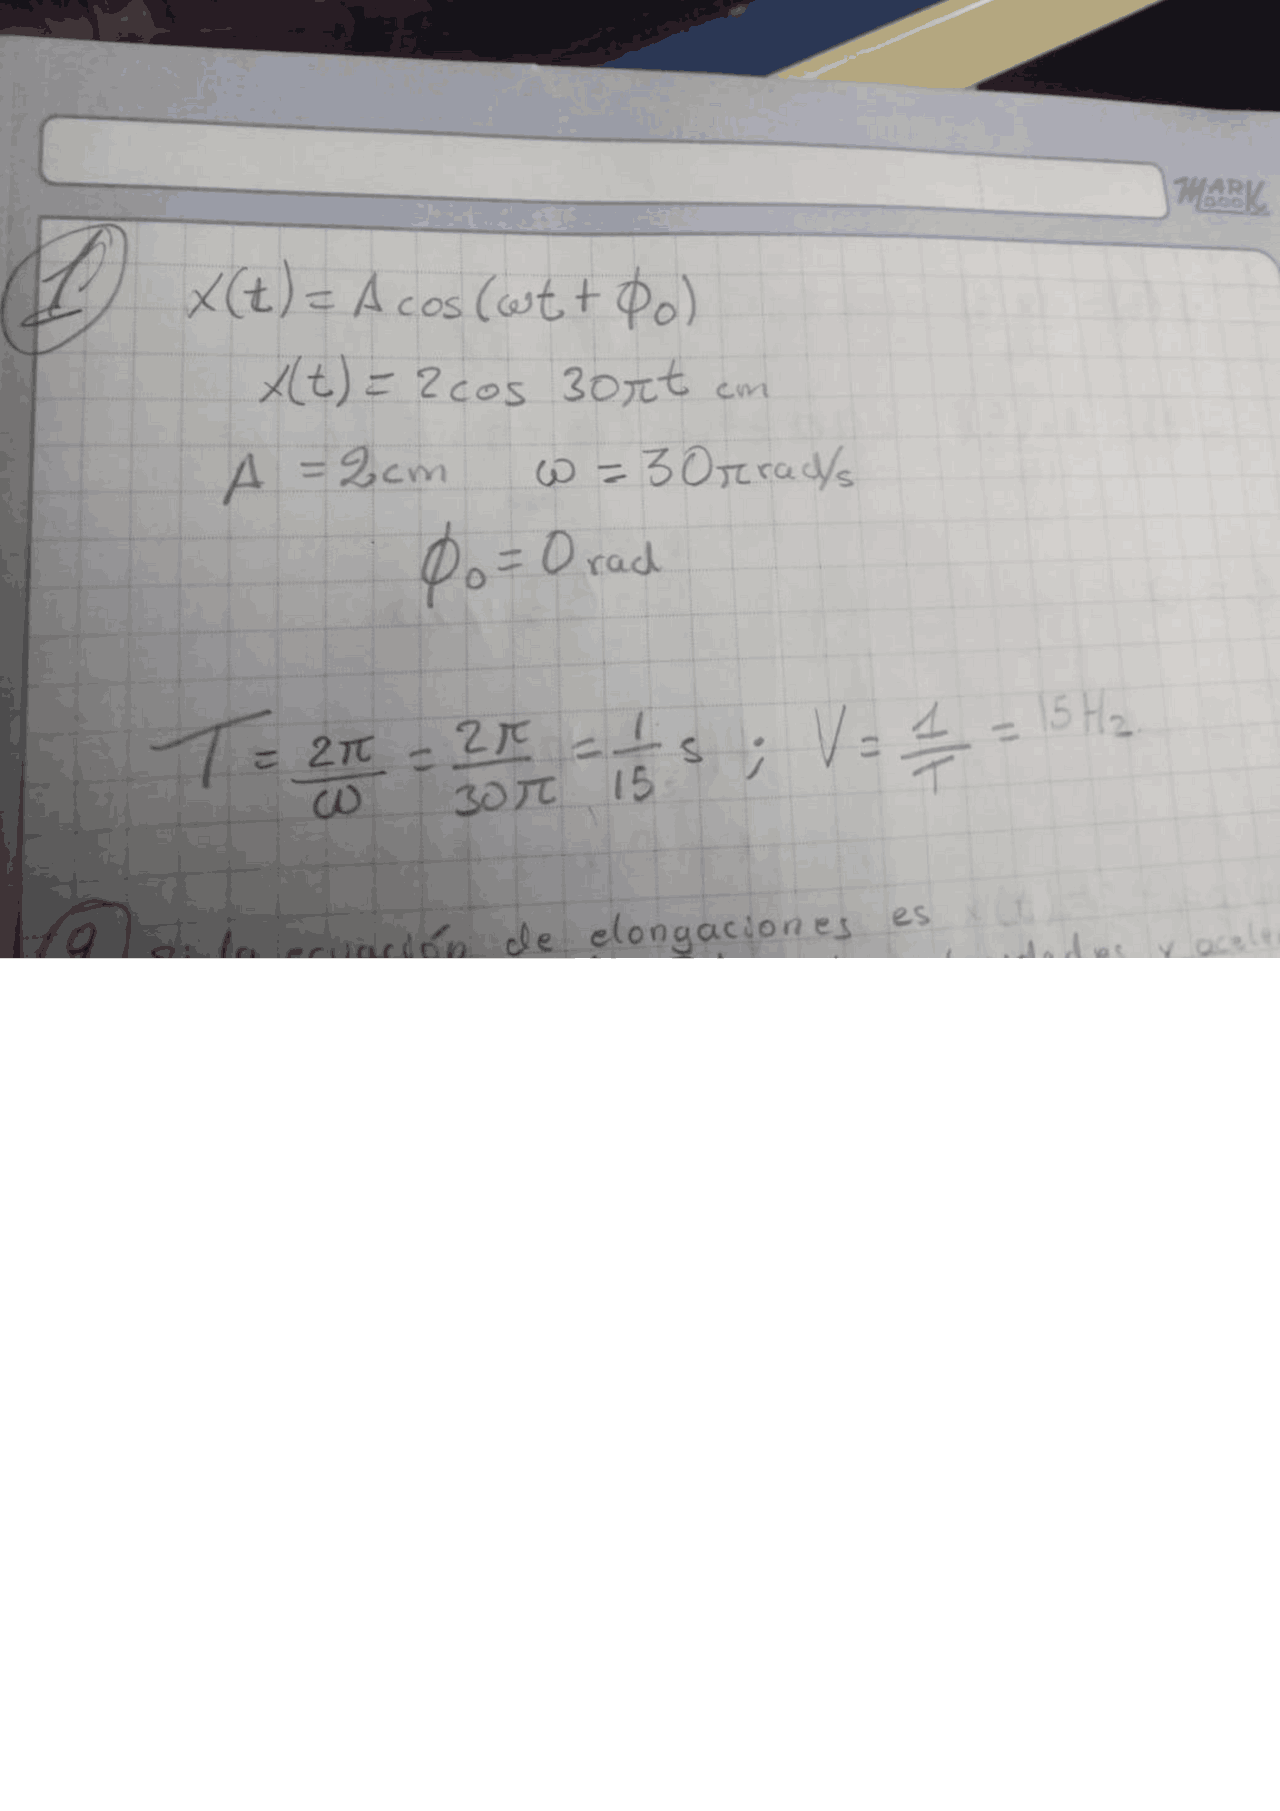 MARK
1
x(t) = A cos (ωt + ϕ₀)
x(t) = 2 cos 30πt cm
A = 2 cm ω = 30π rad/s
ϕ₀ = 0 rad
T = 2π/ω = 2π/30π = 1/15 s ; V = 1/T = 15 Hz
la ecuación de elongaciones es
y